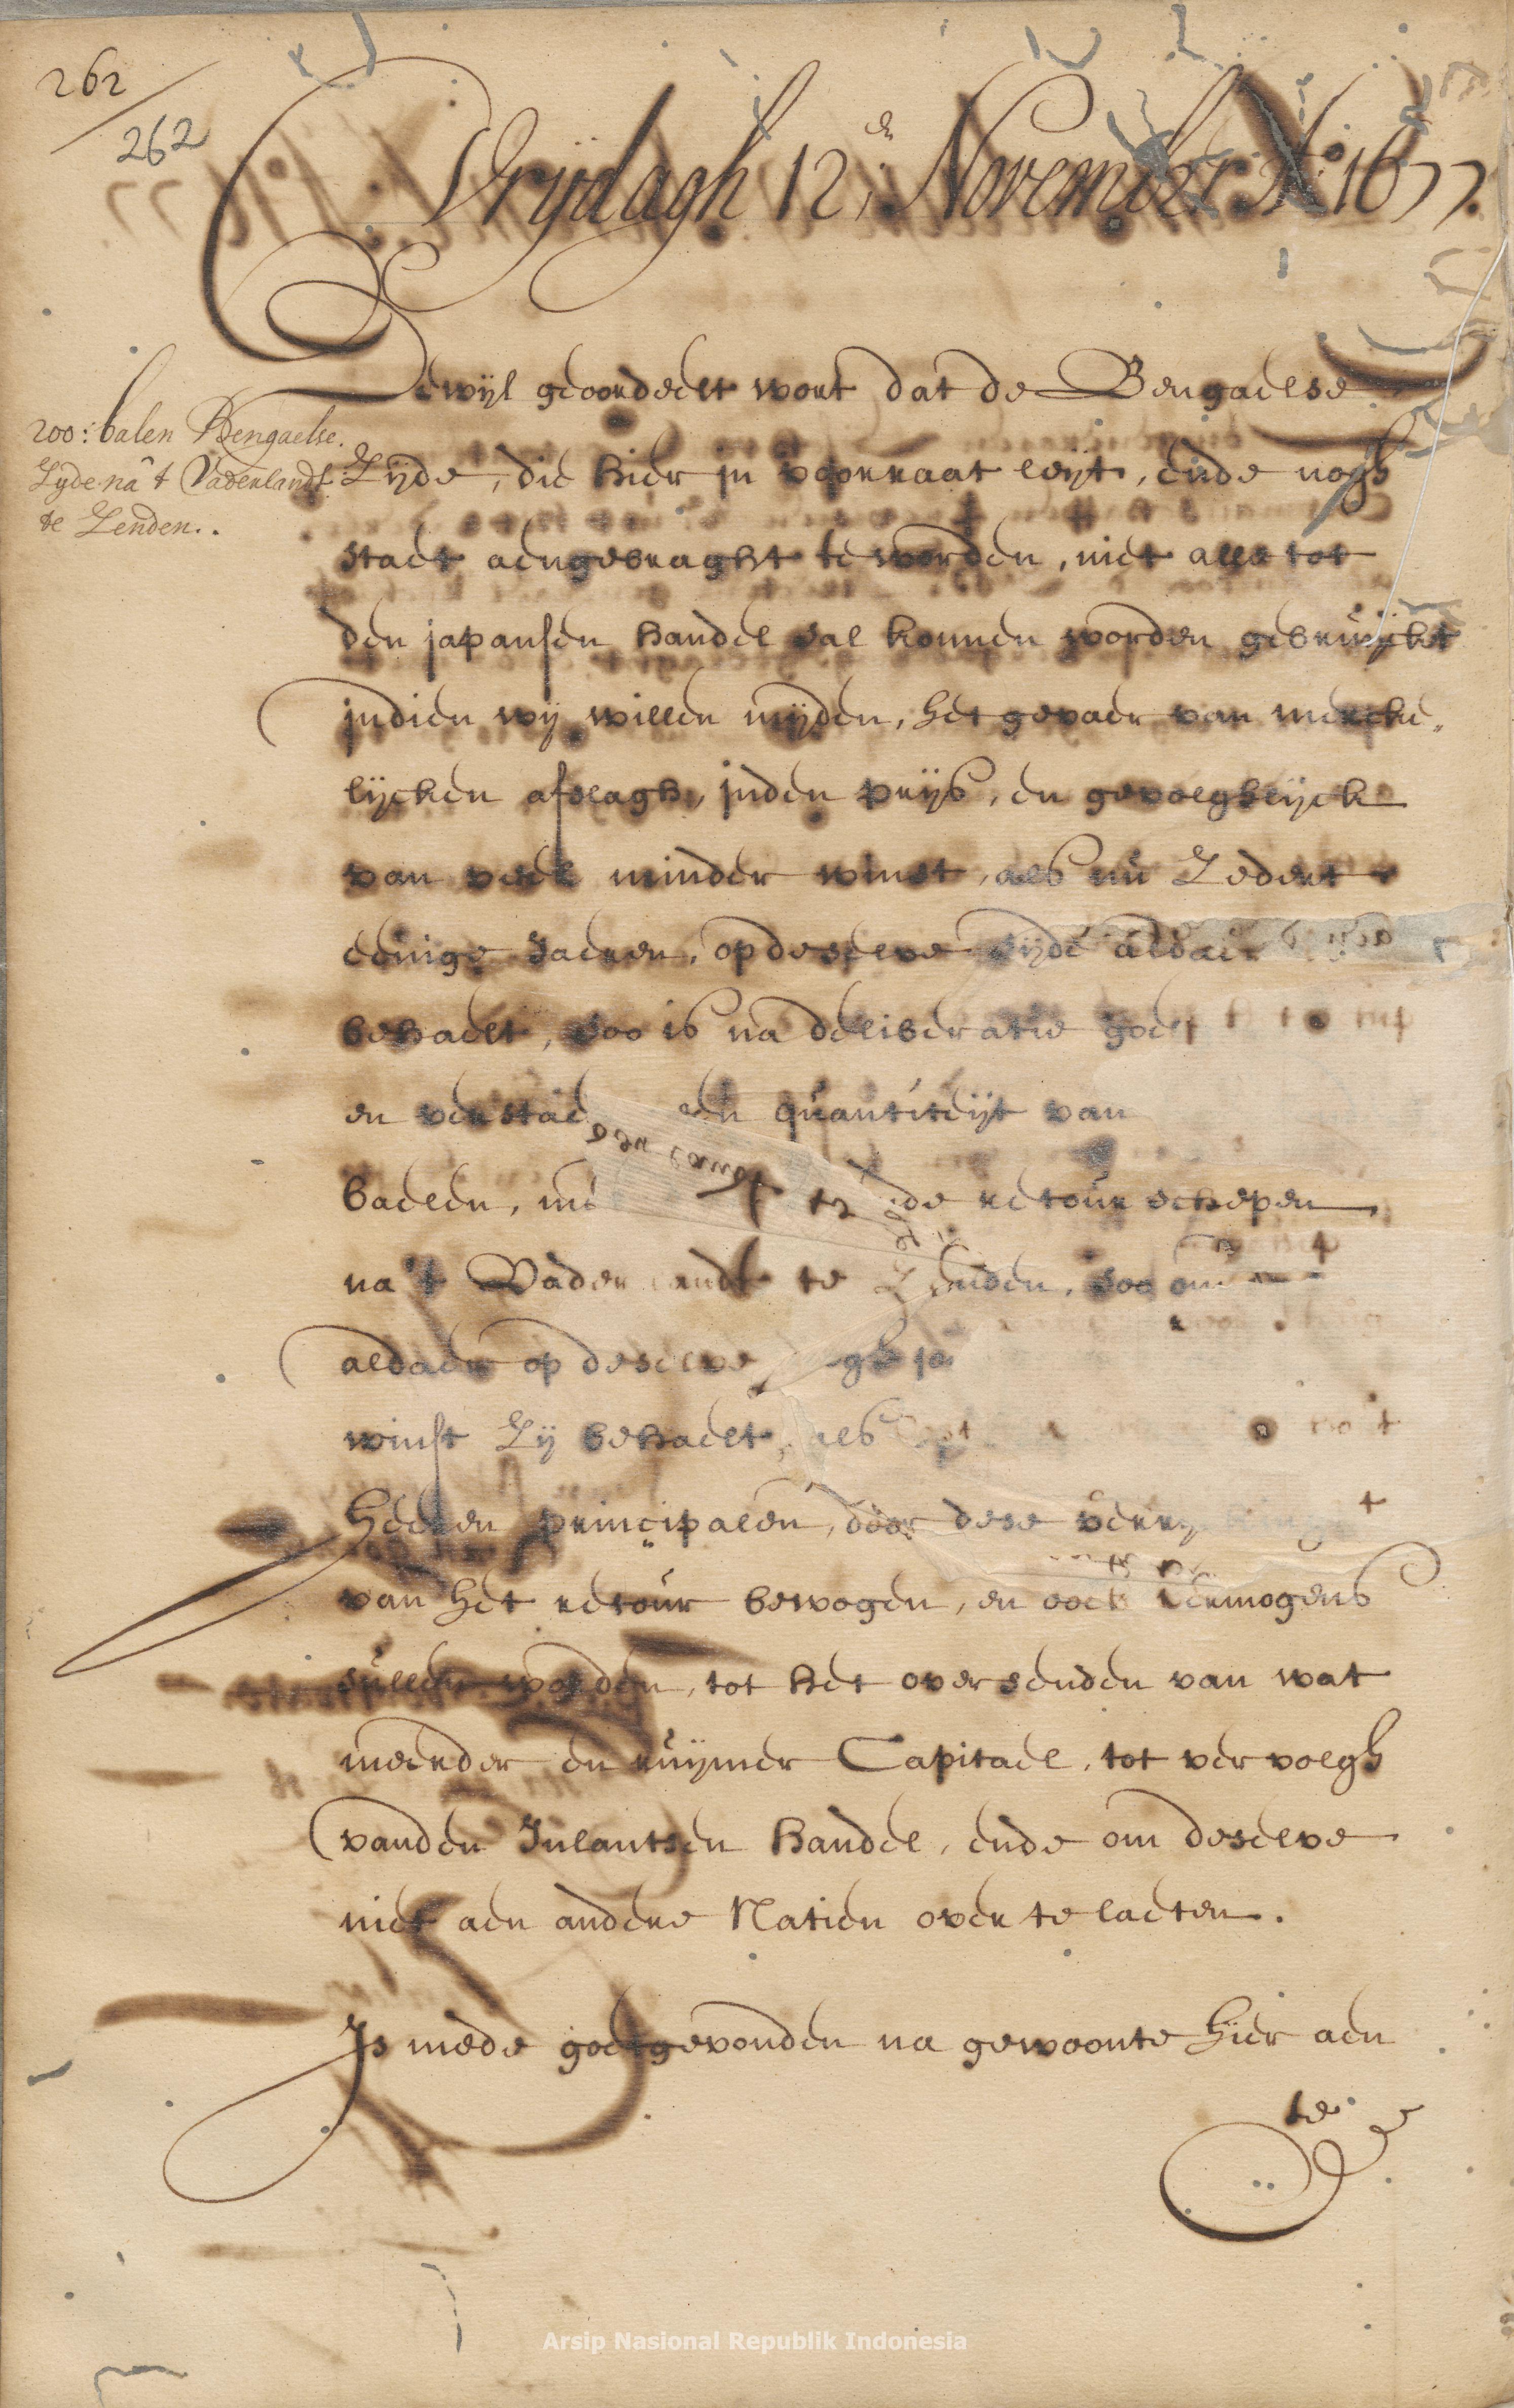 262
262
Vrijdagh 12.en November Ao. 1677.
200: balen Bengaelse
Zyde na 't Vaderlandt
te Zenden..
Dewijl geoordeelt wort dat de Bengaelse
Zijde, die hier in voorraat leijt, ende nogh
staet aengebraght te worden, niet alle tot
den japansen handel sal konnen worden gebruijckt
indien wij willen mijden, het gevaer van mercke„
lijcken afslagh, inden prijs, en gevolghlijck
van veele minder winst, als nu Zedert
eenige Jaeren, op deselve zijde aldaer
behaelt, soo is na deliberatie
en een quantiteijt van
baelen, de retour schepen
na 't Vaderlandt te Zenden, soo om
aldaer op deselve
winst Zij behaelt, als
Heeren principalen, door dese
van het retour bewogen, en oock vermogens
sullen worden, tot het oversenden van wat
meerder en ruijmer Capitael, tot vervolgh
vanden Inlantsen handel, ende om deselve
niet aen andere Natien over te laeten.
Is mede goetgevonden na gewoonte hier aen
te
Arsip Nasional Republik Indonesia